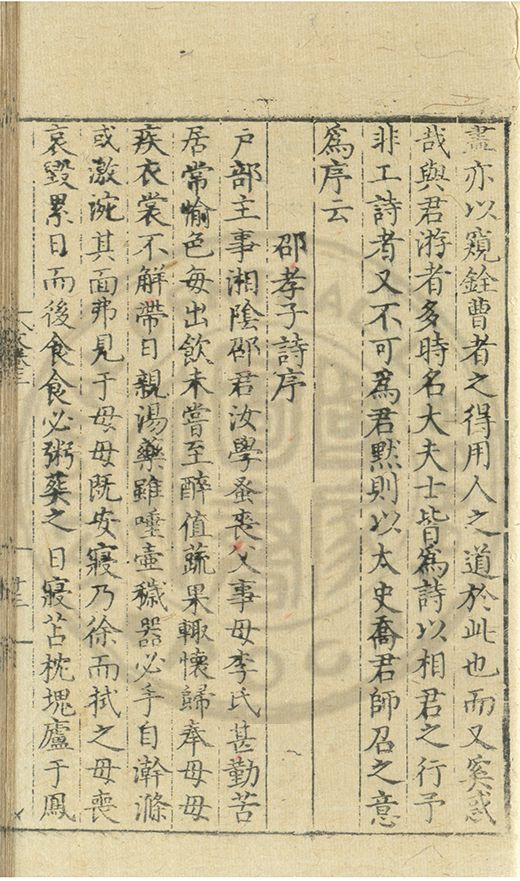 盡亦以窺銓曹者之得用人之道於此也而又奚惑
哉與君游者多時名大夫士皆爲詩以相君之行予
非工詩者又不可爲君黙則以太史喬君師召之意
爲序云
邵孝子詩序
户部主事湘陰邵君汝學蚤喪父事母李氏甚勤苦
居常愉色毎出飲未嘗至醉值蔬果輙懷歸奉母母
疾衣裳不解帶日親湯藥雖唾壷穢器必手自澣滌
或激涴其面弗見于母母既安寢乃徐而拭之母喪
哀毀累日而後食食必粥葬之日寢苫枕塊廬于鳳